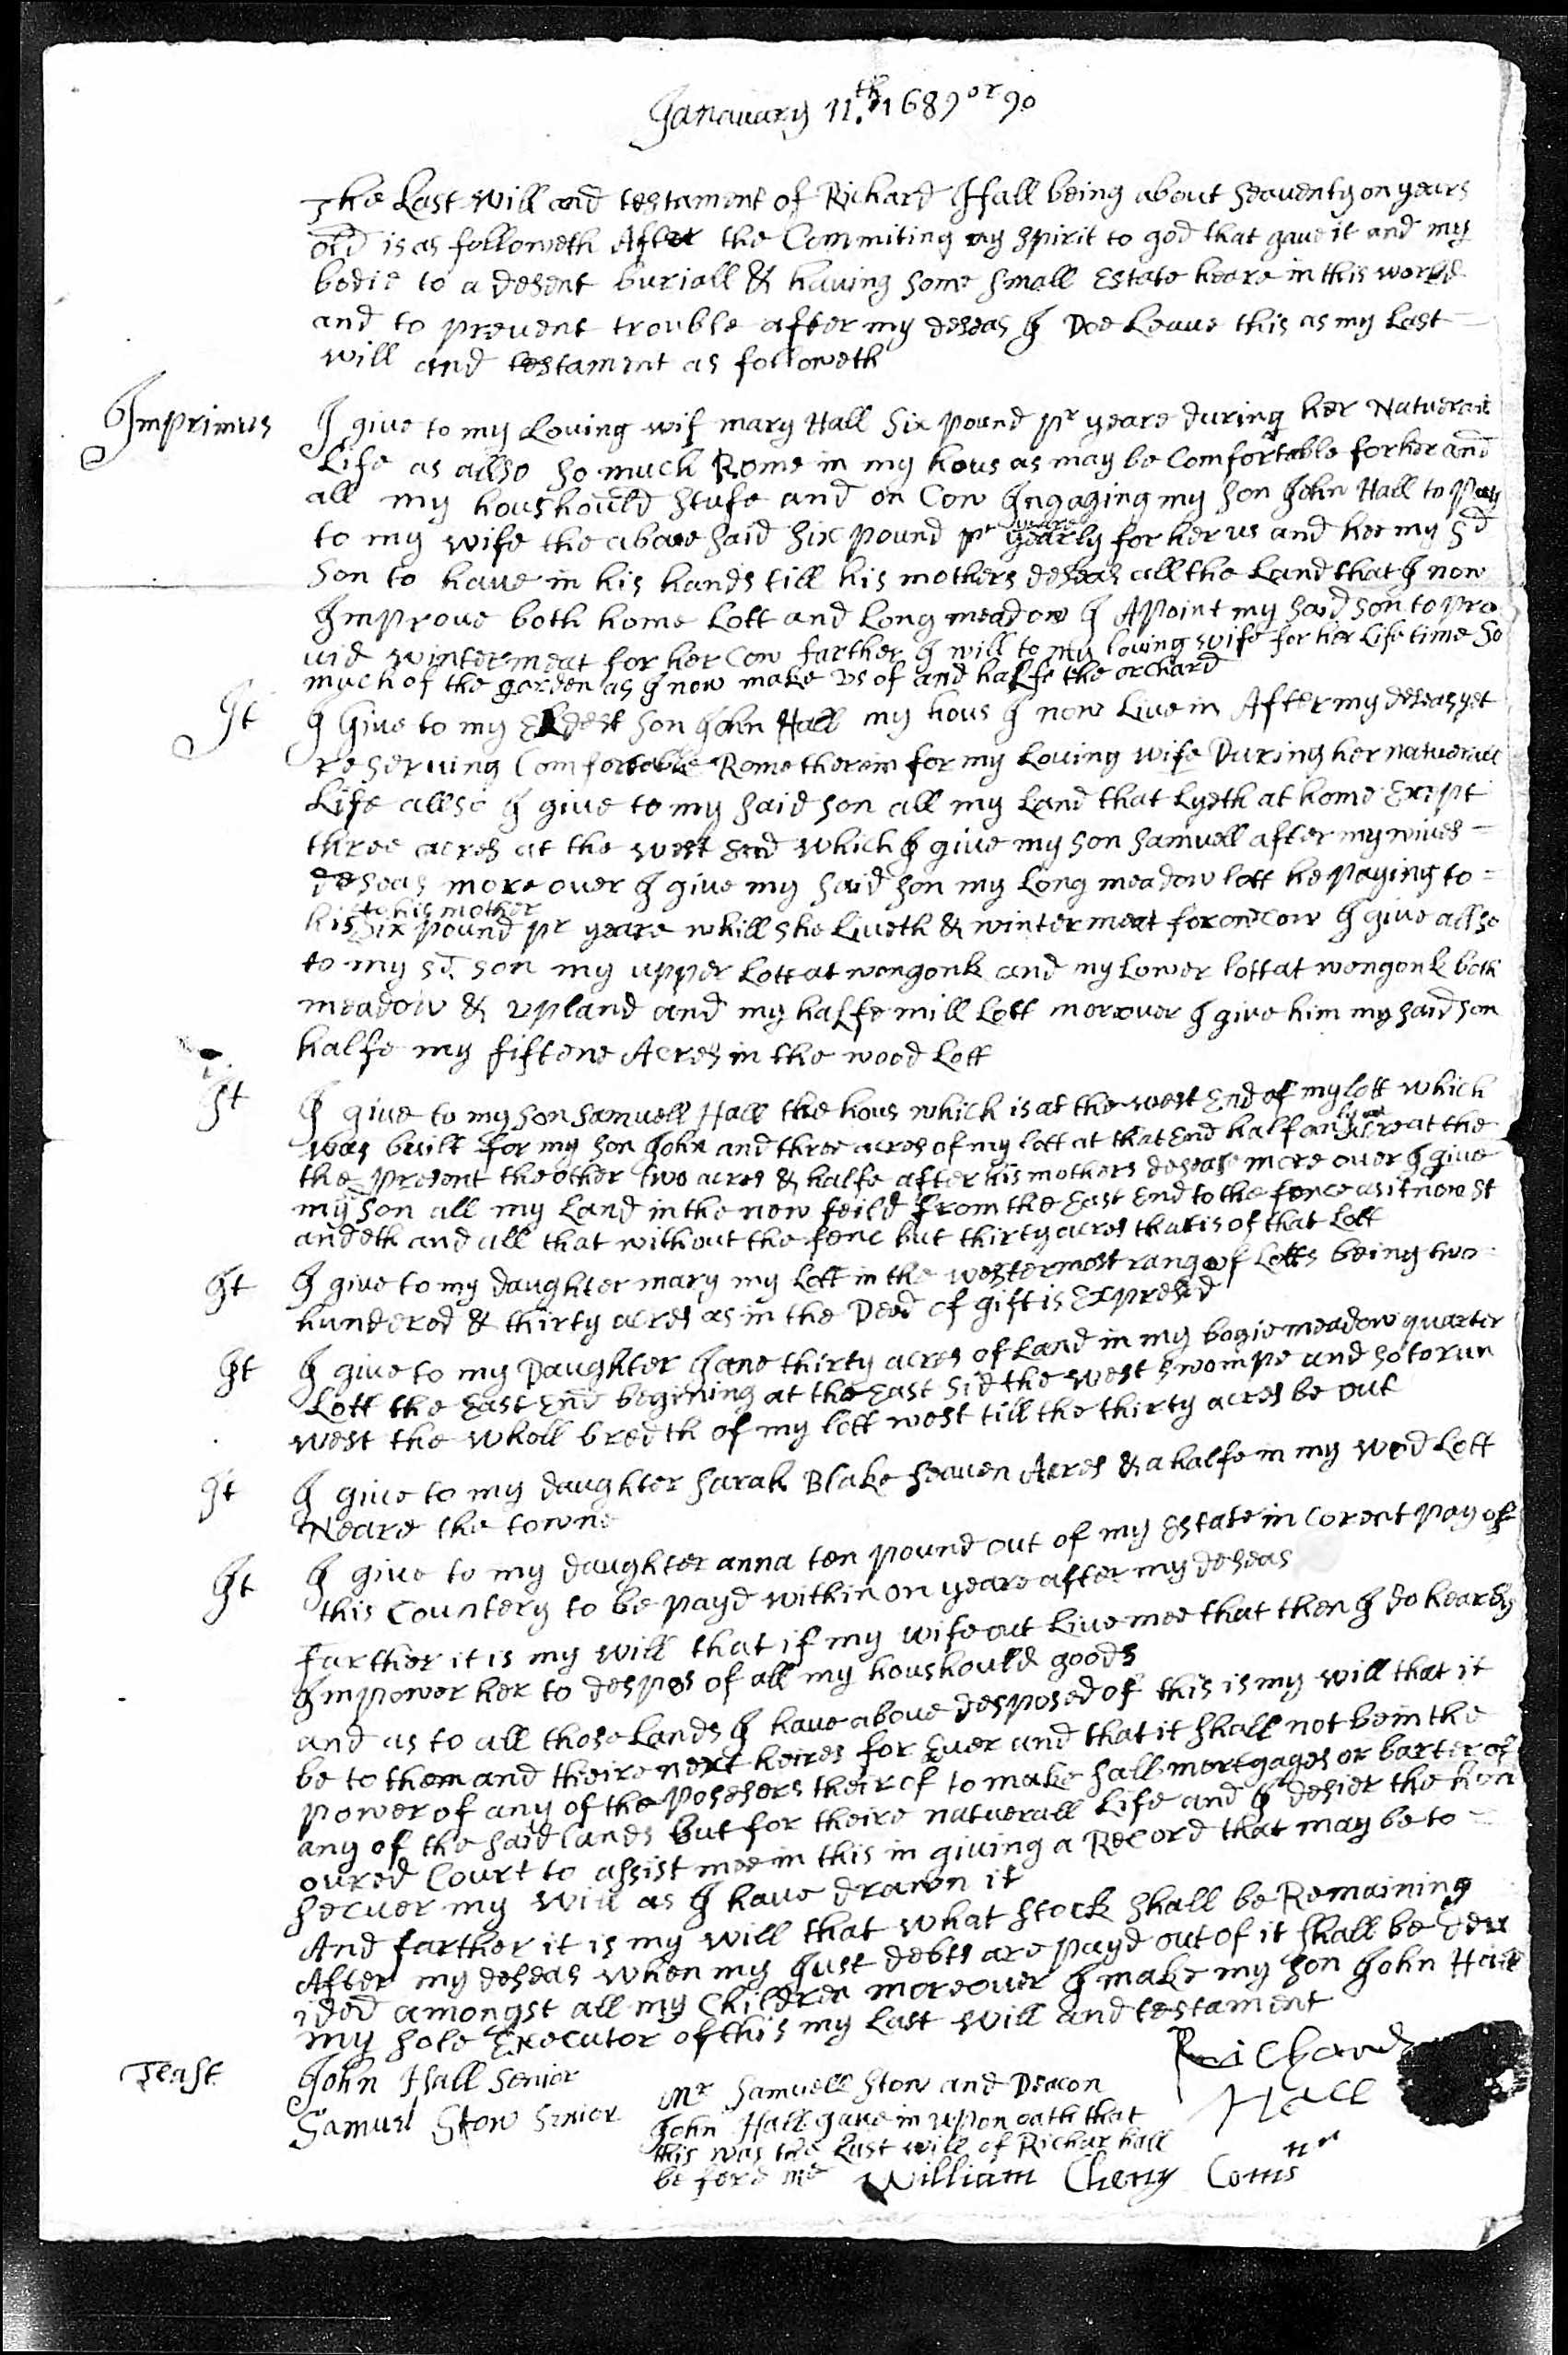 Janauary 11.th 1689 or 90
The Last Will and testament of Richard Hall being about Seauenty on years
old is as followeth After the Commiting my Spirit to god that gaue it and my
bodie to a desent buriall & hauing some small Estate heare in this world
and to preuent trouble after my deseas I Doe Leaue this as my Last
will and testament as followeth
Imprimus I giue to my Louing wif mary Hall Six pound pr yeare during her Natuerall
Life as allso so much Rome in my hous as may be Comfortable for her and
all my houshould stufe and on Cow Ingaging my son John Hall to pay
to my wife the aboue said six pound pr yearly for her us and her my sd
Son to haue in his hands till his mothers deseas all the Land that I now
Improue both home Lott and Long meadow I Apoint my said son to pro
uid winter meat for her Cow farther I will to my louing wife for her Life time So
much of the garden as I now make us of and halfe the orchard
It I Giue to my Eldest Son John Hall my hous I now Liue in After my deseas yet
reseruing Comfortable Rome therein for my Louing wife During her natuerall
Life allso I giue to my said son all my Land that Lyeth at home Exept
three acres at the west End which I giue my son Samuell after my wiues
deseas more ouer I giue my said son my Long meadow lott he paying to
his to his mother Six pound pr yeare whill she Liueth & winter meat for one cow I giue allso
to my sd. son my upper Lott at wongonk and my Lower lott at wongonk both
meadow & upland and my halfe mill Lott moreouer I giue him my said son
halfe my fiftene Acres in the wood Lott
It I giue to my son Samuell Hall the hous which is at the west End of my lott which
was built for my son John and three acres of my lott at that End half an Acre at the
the present the other two acres & halfe after his mothers deseas more ouer I giue
my son all my Land in the new feild from the East End to the fence as it now st
andeth and all that without the fenc but thirty acres that is of that Lott
It I giue to my daughter mary my Lott in the westermost range of Lotts being two
hundered & thirty acres as in the Deed of gift is Expresed
It I giue to my Daughter Jane thirty acres of Land in my bogie meadow quarter
Lott the East End begining at the East Sid the west swompe and so to run
west the wholl bredth of my lott west till the thirty acres be out
It I giue to my daughter Sarah Blake seauen Acres & a halfe in my wod Lott
Neare the towne
It I giue to my daughter anna ten pound out of my Estate in Corent pay of
this Countery to be payd within on yeare after my deseas
farther it is my will that if my wife out Liue mee that then I do hearby
Impower her to despos of all my houshould goods
and as to all those Lands I haue aboue desposed of this is my will that it
be to them and theire next heires for Euer and that it shall not be in the
power of any of the posesers theirof to make sall mortgages or barter of
any of the said lands but for theire natuerall Life and I desier the hon
oured Court to assist mee in this in giuing a Record that may be to
secuer my will as I haue drawn it
And farther it is my will that what stock shall be Remaining
After my deseas when my Just debts are payd out of it shall be deu
ided amongst all my Children moreouer I make my son John Hall
my sole Executor of this my Last will and testament
Teast John Hall Senior
Samuel Stow Senior
Richard
Hall
Mr Samuell Stow and Deacon
John Hall gaue in upon oath that
this was the Last will of Richar hall
before me William Cheny Comisr